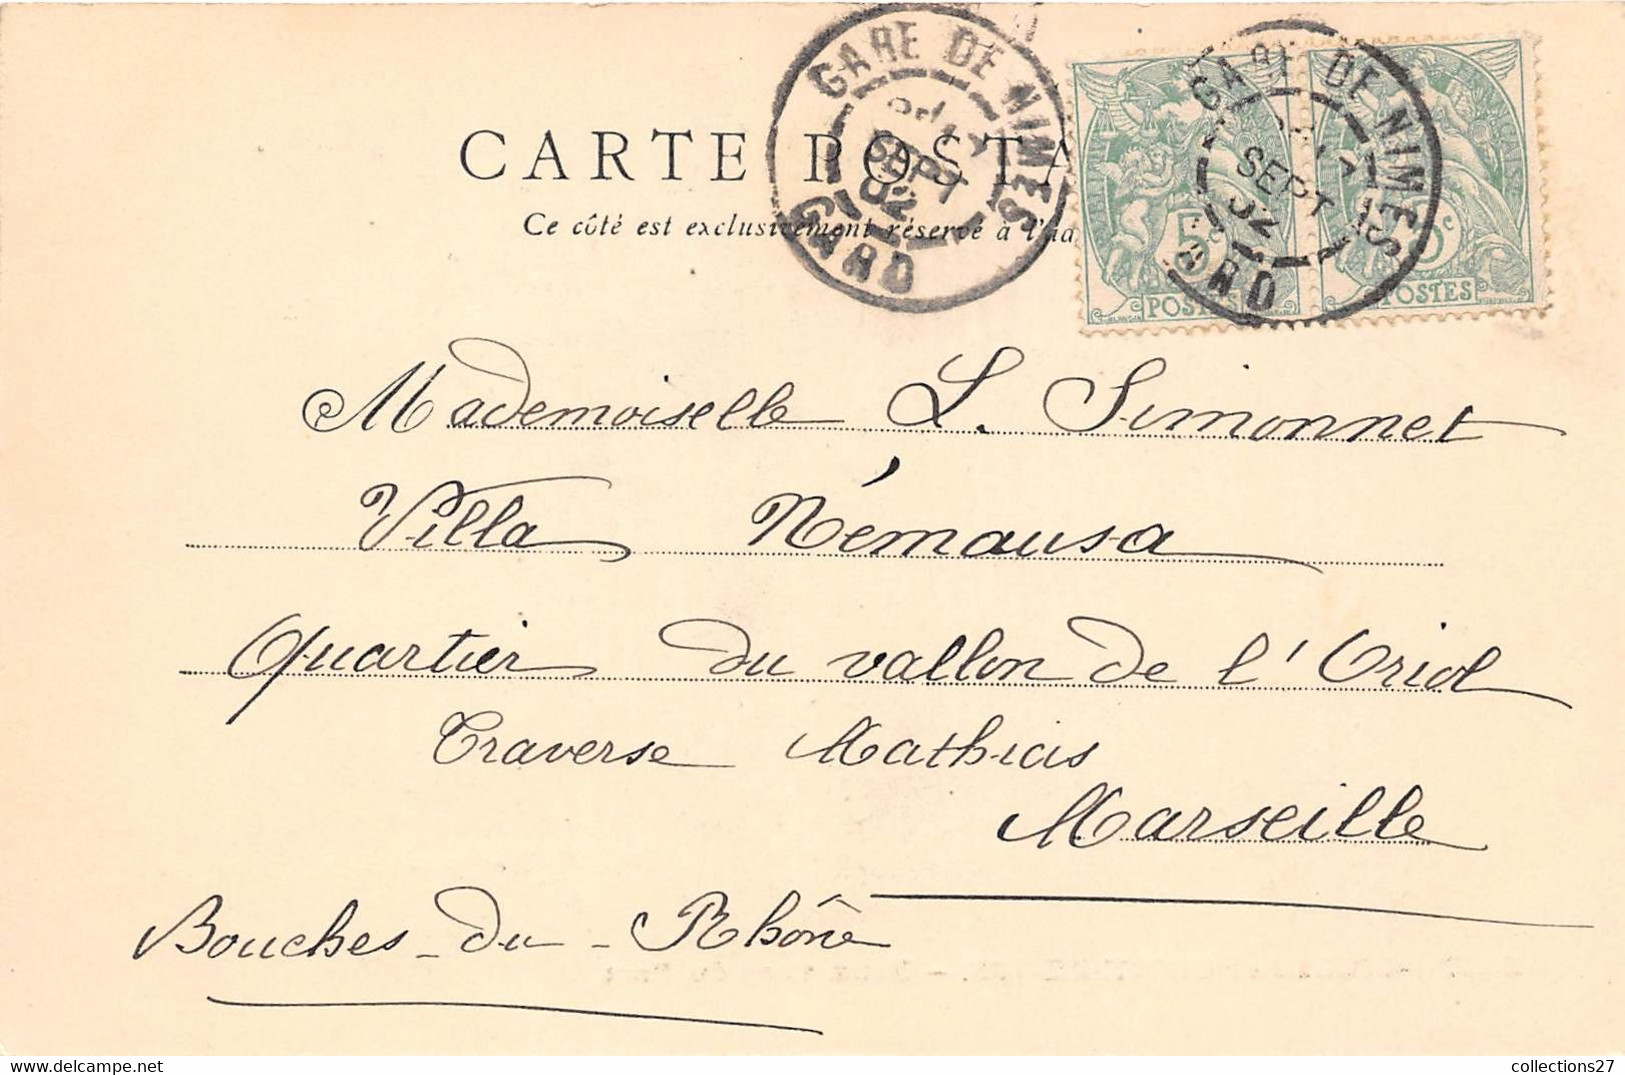 GARE DE NIMES
SEPT
02
GARD
GARE DE NIMES
SEPT
02
GARD
5c
POSTES
5c
POSTES
CARTE POSTA
Ce côté est exclusivement réservé à l'ad
Mademoiselle L. Simonnet
Villa Némausa
Quartier du vallon de l'Oriol
Traverse Mathias
Marseille
Bouches-du-Rhône
collections27